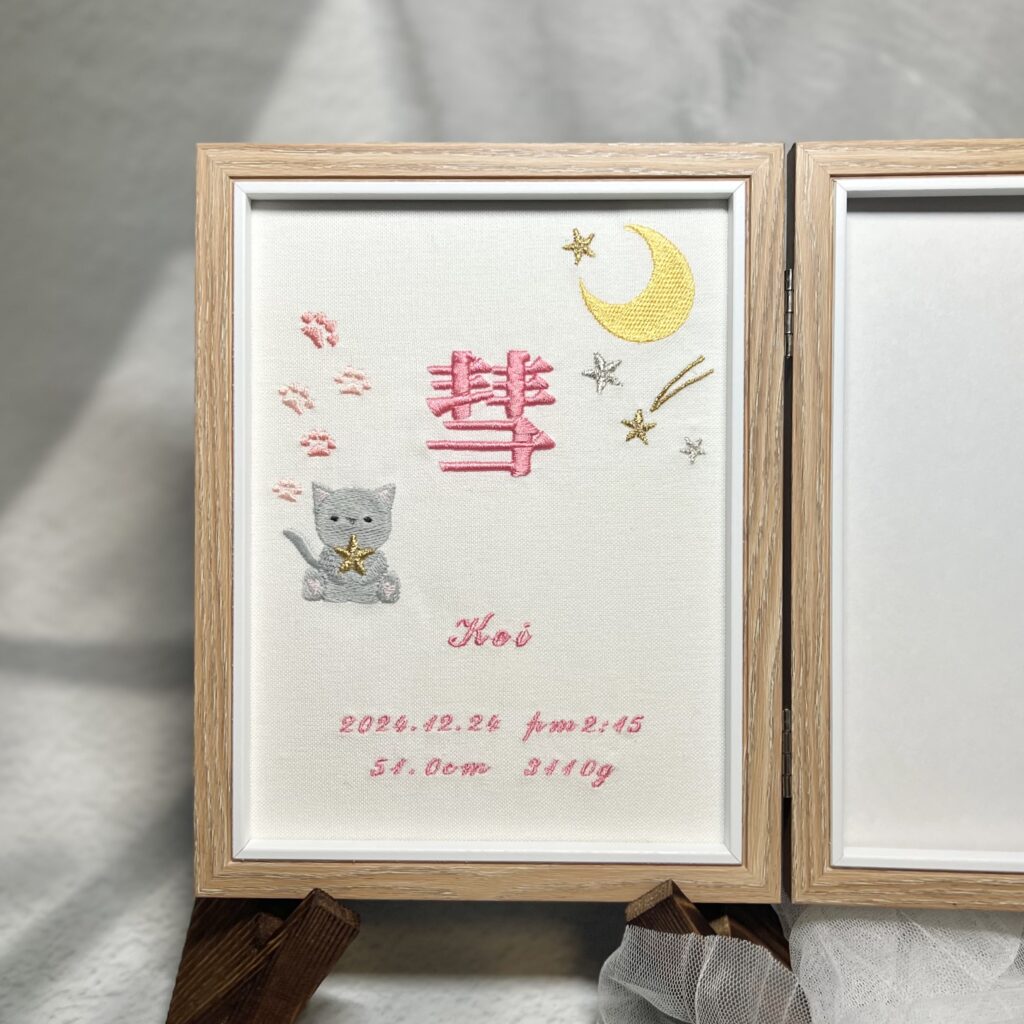 彗
Koi
2024.12.24 pm2:15
51.0cm 3110g